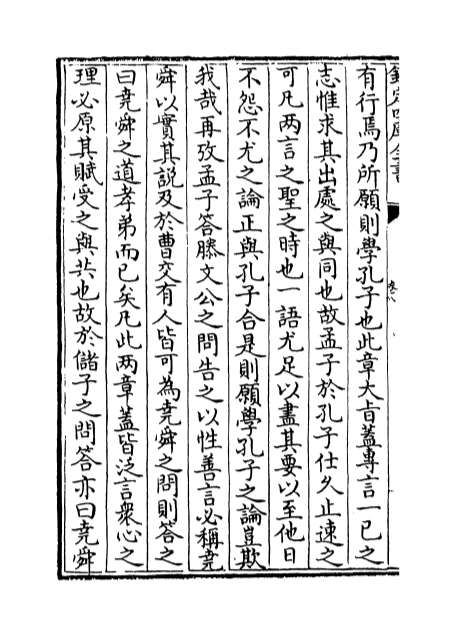 有行焉乃所願則學孔子也此章大旨蓋專言一己之
志惟求其出處之與同也故孟子於孔子仕久止速之
可凡两言之聖之時也一語尤足以盡其要以至他日
不怨不尤之論正與孔子合是則願學孔子之論豈欺
我哉再攷孟子答滕文公之問告之以性善言必稱堯
舜以實其説及於曹交有人皆可為堯舜之問則答之
曰堯舜之道孝弟而已矣凡此两章蓋皆泛言衆心之
理必原其賦受之與共也故於儲子之問答亦曰堯舜